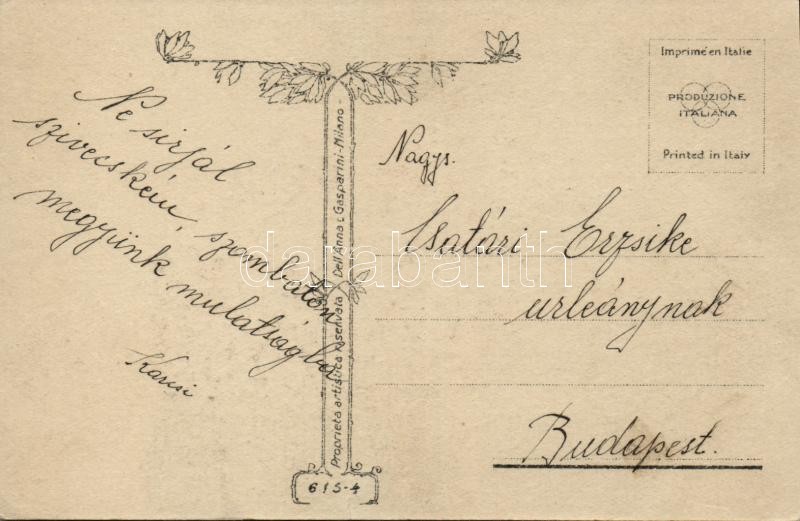 Ne sirjál
szivecském, szombaton
megyünk mulatságba
Karcsi
Proprieta artistica riservata - Dell'Anna & Gasparini-Milano-
615-4
Imprimé en Italie
PRODUZIONE
ITALIANA
Printed in Italy
Nagys.
Csatári Erzsike
urleánynak
Budapest.
darabanth